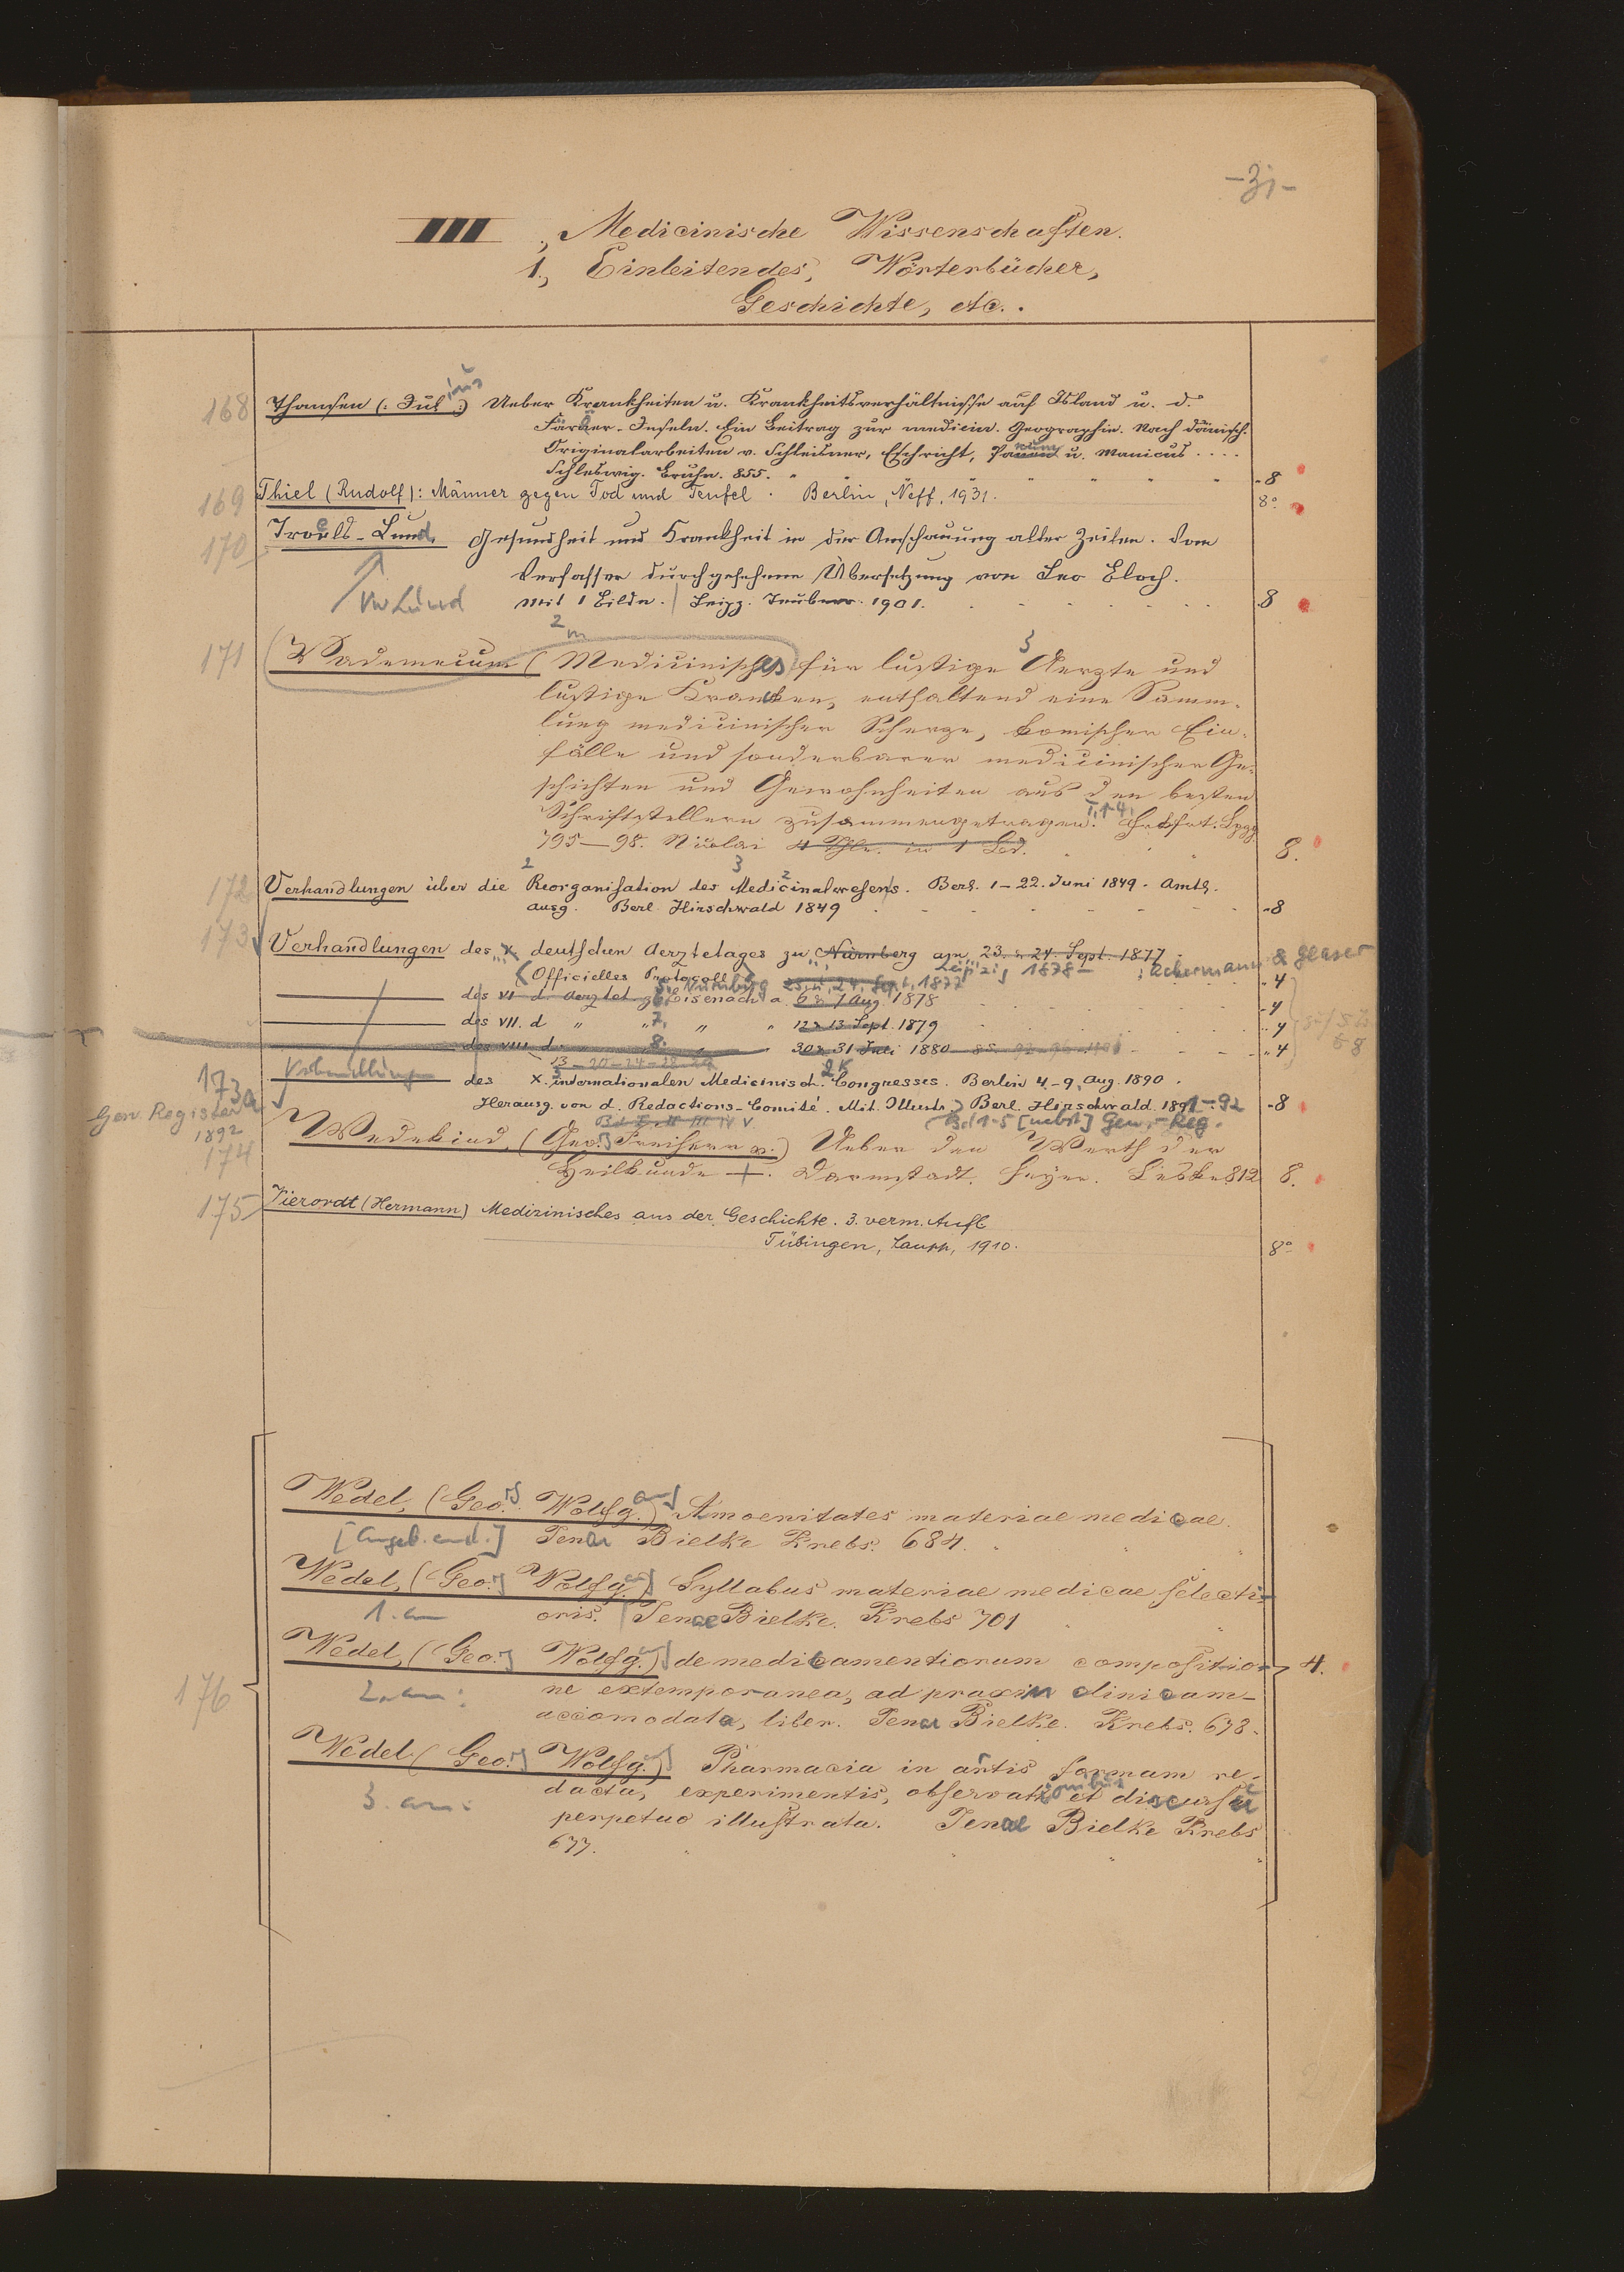 -31-
III., Medicinische Wissenschaften.
1., Einleitendes, Wörterbücher,
Geschichte, etc..
168 Thomsen (: Julius :) Ueber Krankheiten u. Krankheitsverhältnisse auf Island u. d.
Färöer-Inseln. Ein Beitrag zur medicin. Geographie. Nach dänisch.
Originalarbeiten v. Schleisner, Eschricht, Panum u. Manicus....
Schleswig. Bruhn. 855. -8
169 Thiel (Rudolf): Männer gegen Tod und Teufel. Berlin, Neff, 1931. 8°
170 Troels-Lund. Gesundheit und Krankheit in der Anschauung alter Zeiten. Vom
Verfasser durchgesehene Übersetzung von Leo Bloch.
vw Lund mit 1 Bilde. Leipz. Teubner. 1901. 8
171 Vademecum (Medicinisches) für lustige Aerzte und
lustige Kranken, enthaltend eine Samm-
lung medicinischer Scherze, komischer Ein-
fälle und sonderbarer medicinischer Ge-
schichten und Gewohnheiten aus den besten
Schriftstellern zusammengetragen. T. 1-4. Frkfrt. Lpzg
795—98. Nicolai 4 Thle. in 1 Bd. 8.
172 Verhandlungen über die Reorganisation des Medicinalwesens. Berl. 1-22. Juni 1849. Amtl.
ausg. Berl. Hirschwald 1849 -8
173 Verhandlungen des X deutschen Aerztetages zu Nürnberg am 23. u. 24. Sept. 1877
Leipzig 1878- : Ackermann & Glaser
(Officielles Protocoll) Nürnberg 23. u. 24. Sept. 1877 -4
des VI d. Aerztet. z. Eisenach a. 6 u. 7 Aug. 1878 -4
des VII. d " 7. " " 12 u. 13 Sept. 1879 -4
des VIII d. " 8. " 30 u. 31 Juli 1880 -4
13-20-24-28-29
173a Verhandlungen des X. internationalen Medicinisch. Congresses. Berlin 4.-9. Aug. 1890.
Gen. Register
1892
Herausg. von d. Redactions-Comité. Mit Illustr. Berl. Hirschwald. 1891-92 -8
Bd I II III IV V Bd 1-5 [nebst] Gen.-Reg.
174 Wedekind, (Geo. Freiherr v.) Ueber den Werth der
Heilkunde +. Darmstadt. Heyer. Leske 812 8.
175 Vierordt (Hermann) Medizinisches aus der Geschichte. 3. verm. Aufl
Tübingen, Laupp, 1910. 8°
176
Wedel, (Geo. Wolfg.) Amoenitates materiae medicae.
[angeb. and.] Jenae Bielke Krebs. 684.
Wedel, (Geo. Wolfg.) Syllabus materiae medicae selecti-
1. an oris. Jenae Bielke. Krebs 701
Wedel, (Geo. Wolfg.) de medicamentiorum compositio- 4.
2. an: ne extemporanea, ad praxin clinicam-
accomodata, liber. Jenae Bielke. Krebs. 678.
Wedel (Geo. Wolfg.) Pharmacia in artis formam re-
3. an: dacta, experimentis, observationibus et discursu
perpetuo illustrata. Jenae Bielke Krebs
677.